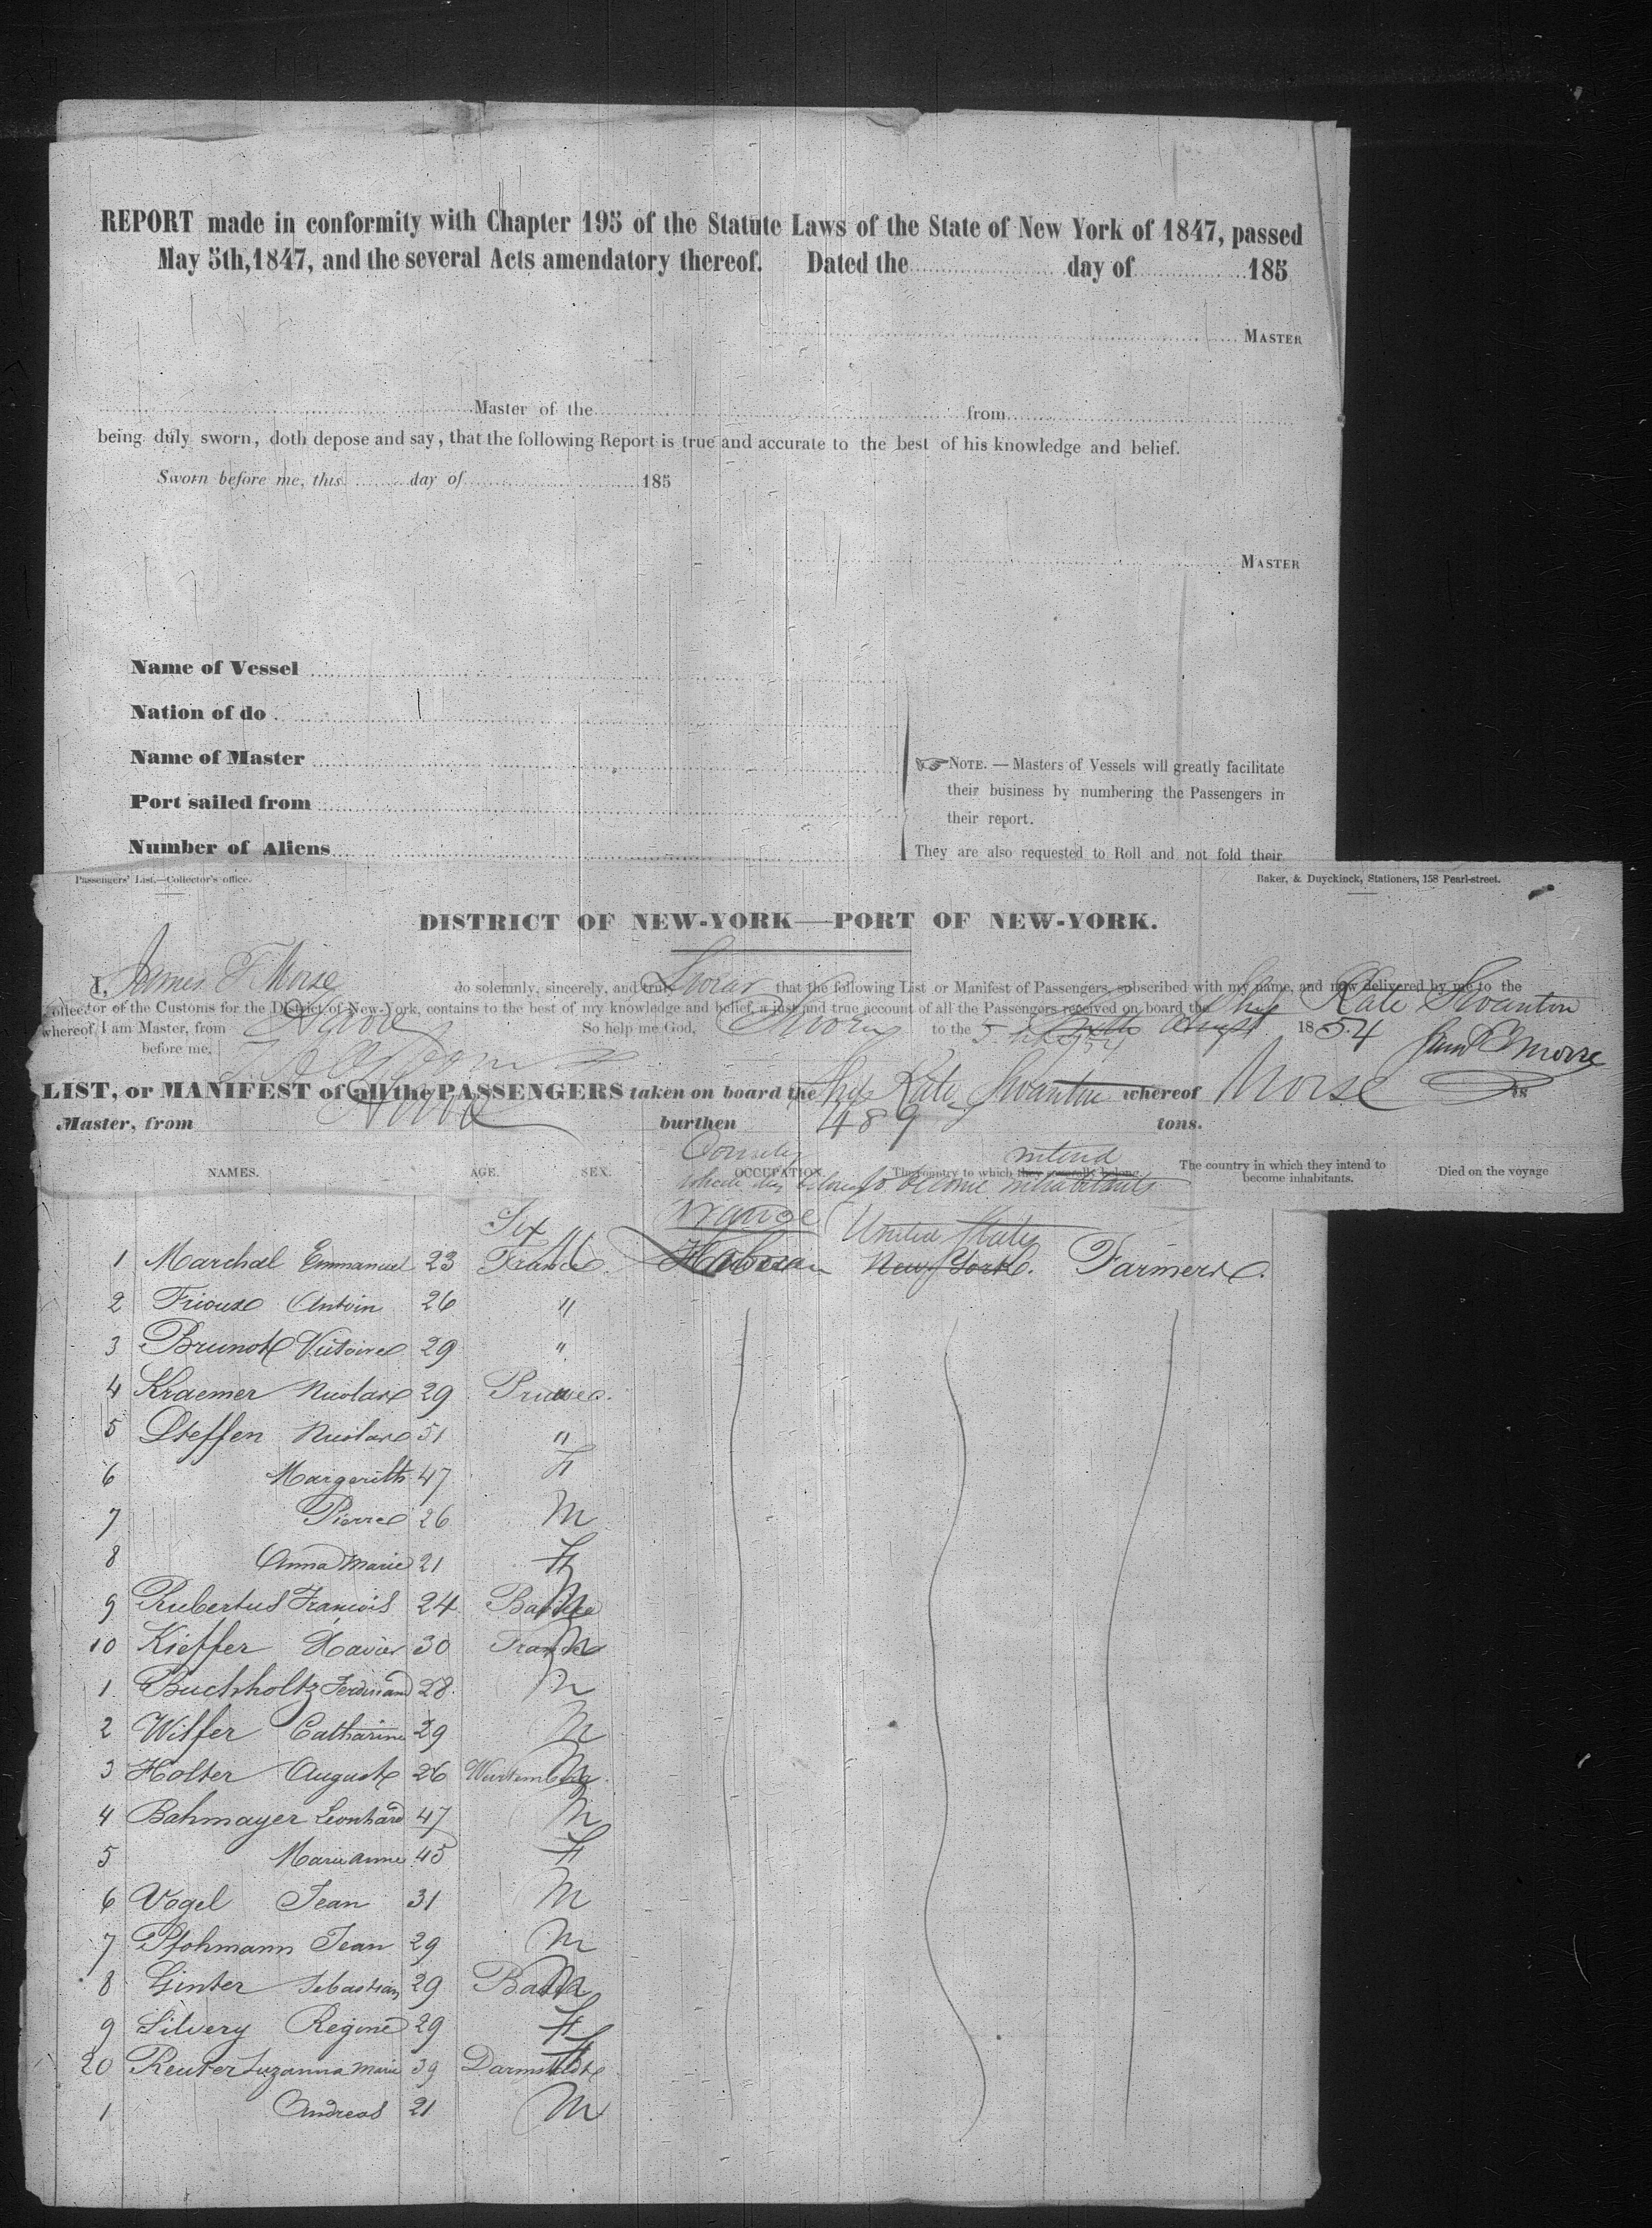 REPORT made in conformity with Chapter 195 of the Statute Laws of the State of New York of 1847, passed
May 5th, 1847, and the several Acts amendatory thereof. Dated the day of 185
MASTER
Master of the from
being duly sworn, doth depose and say, that the following Report is true and accurate to the best of his knowledge and belief.
Sworn before me, this day of 185
MASTER
Name of Vessel
Nation of do
Name of Master
Port sailed from
Number of Aliens
☞ NOTE. — Masters of Vessels will greatly facilitate
their business by numbering the Passengers in
their report.
They are also requested to Roll and not fold their
Passengers' List.—Collector's office.
Baker, & Duyckinck, Stationers, 158 Pearl-street.
DISTRICT OF NEW-YORK—PORT OF NEW-YORK.
I, James F Morse do solemnly, sincerely, and truly Swear that the following List or Manifest of Passengers, subscribed with my name, and now delivered by me to the
Collector of the Customs for the District of New-York, contains to the best of my knowledge and belief, a just and true account of all the Passengers received on board the Ship Kate Swanton
whereof I am Master, from Havre So help me God, Sworn to the 5 Augst 1854
before me,
LIST, or MANIFEST of all the PASSENGERS taken on board the Ship Kate Swanton whereof Morse is
Master, from Havre burthen 489 tons.
NAMES. AGE. SEX. OCCUPATION. The country to which they severally belong. The country in which they intend to become inhabitants. Died on the voyage
Country intend
to become inhabitants
Sex United States
1 Marchal Emmanuel 23 France New York. Farmers.
2 Frioux Antoin 26 "
3 Brunot Victoire 29 "
4 Kraemer Nicolas 29 Prusse.
5 Steffen Nicolas 51 "
6 Margerith 47 F
7 Pierre 26 M
8 Anna Marie 21 F
9 Rubertus François 24 M
10 Kieffer Xavier 30 France M
1 Buchholtz Ferdinand 28 M
2 Wilfer Catharine 29 M
3 Holter August 26 Wurtemberg M
4 Bahmayer Leonhard 47 M
5 Marie Anne 45 F
6 Vogel Jean 31 M
7 Pfohmann Jean 29 M
8 Ginter Sebastian 29 Baden M
9 Silvery Regine 29 F
20 Reuter Suzanna Marie 39 Darmstadt F
1 Andreas 21 M